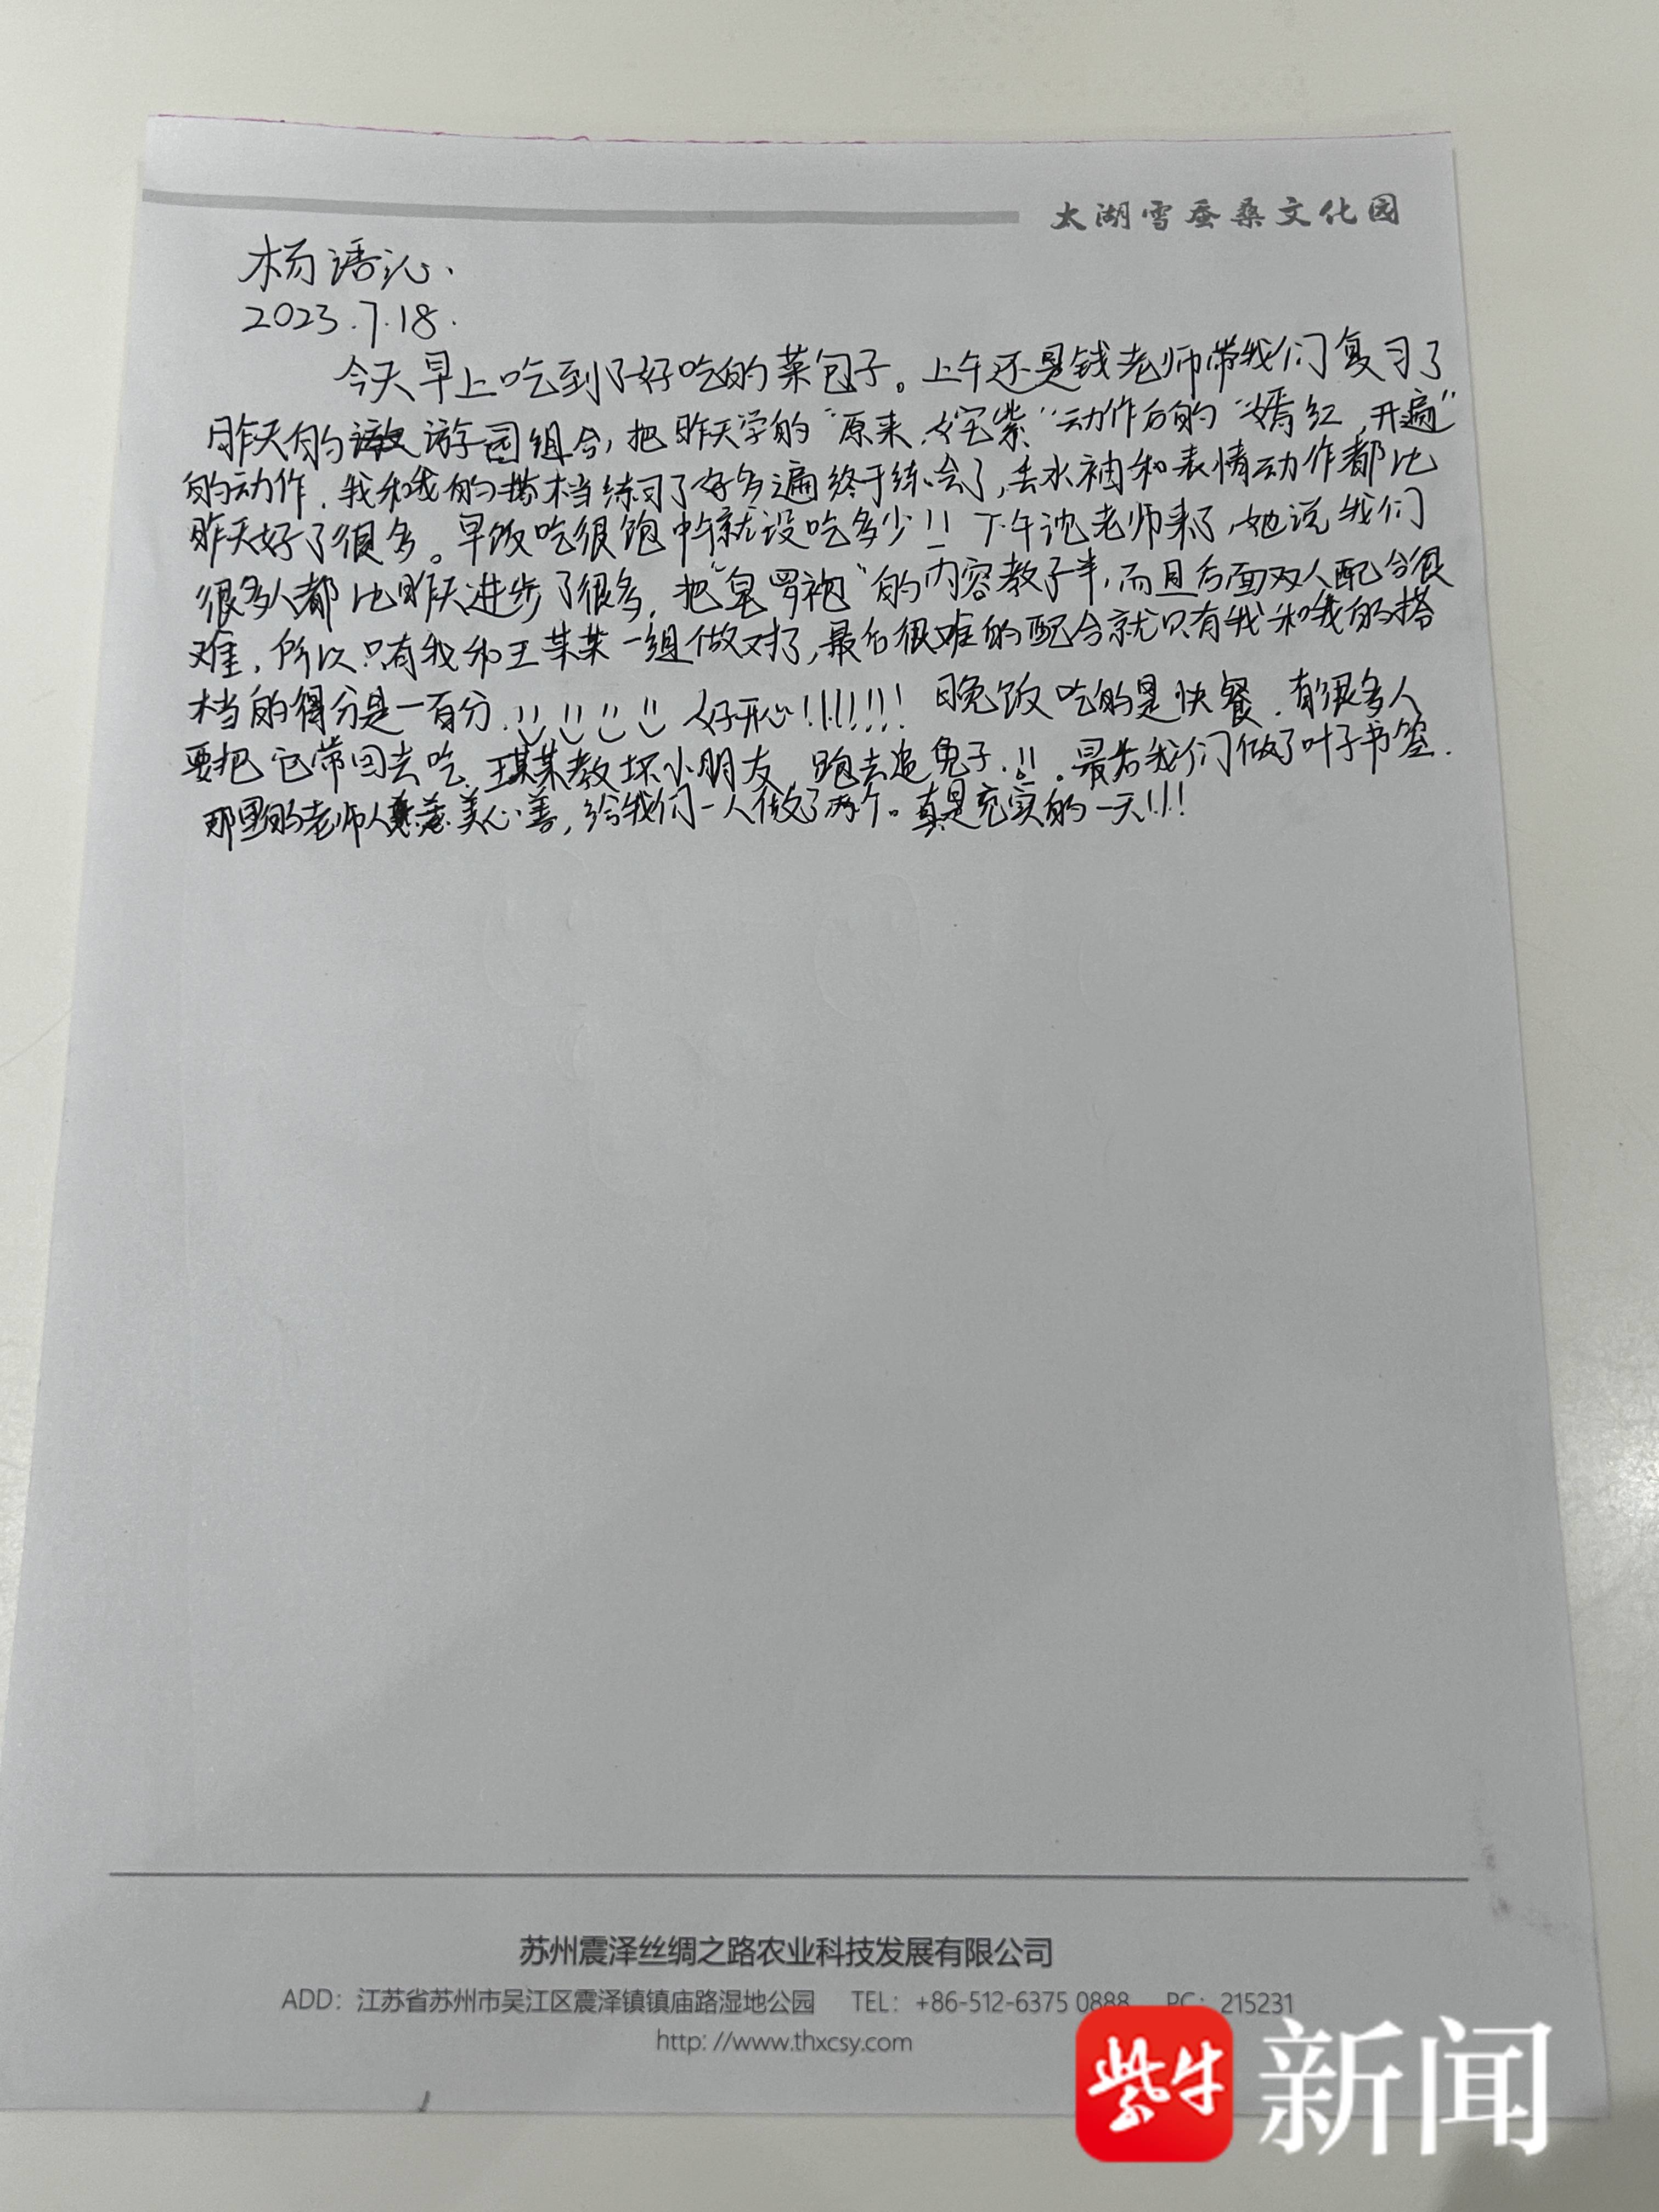 太湖雪蚕桑文化园
杨语沁.
2023.7.18.
今天早上吃到了好吃的菜包子。上午还是钱老师带我们复习了
昨天的游园组合,把昨天学的“原来姹紫”动作后的“嫣红,开遍”
的动作.我和我的搭档练习了好多遍终于练会了,丢水袖和表情动作都比
昨天好了很多。早饭吃很饱中午就没吃多少!!下午沈老师来了,她说我们
很多人都比昨天进步了很多.把“皂罗袍”的内容教了半,而且后面双人配合很
难,所以只有我和王某某一组做对了,最后很难的配合就只有我和我的搭
档的得分是一百分.好开心!!!!!!!晚饭吃的是快餐.有很多人
要把它带回去吃.王某某教坏小朋友,跑去追兔子.!!.最后我们做了叶子书签.
那里的老师人美心善,给我们一人做了两个。真是充实的一天!!!
苏州震泽丝绸之路农业科技发展有限公司
ADD：江苏省苏州市吴江区震泽镇镇庙路湿地公园 TEL：+86-512-6375 0888 PC：215231
http: //www.thxcsy.com
紫牛新闻